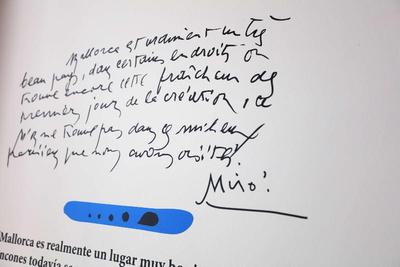 Mallorca est vraiment un très
beau pays, dans certains endroits on
trouve encore cette fraîcheur des
premiers jours de la création, ce
trouve pas dans milieux
que nous avons
Miró!
Mallorca es realmente un lugar muy
rincones todavía se